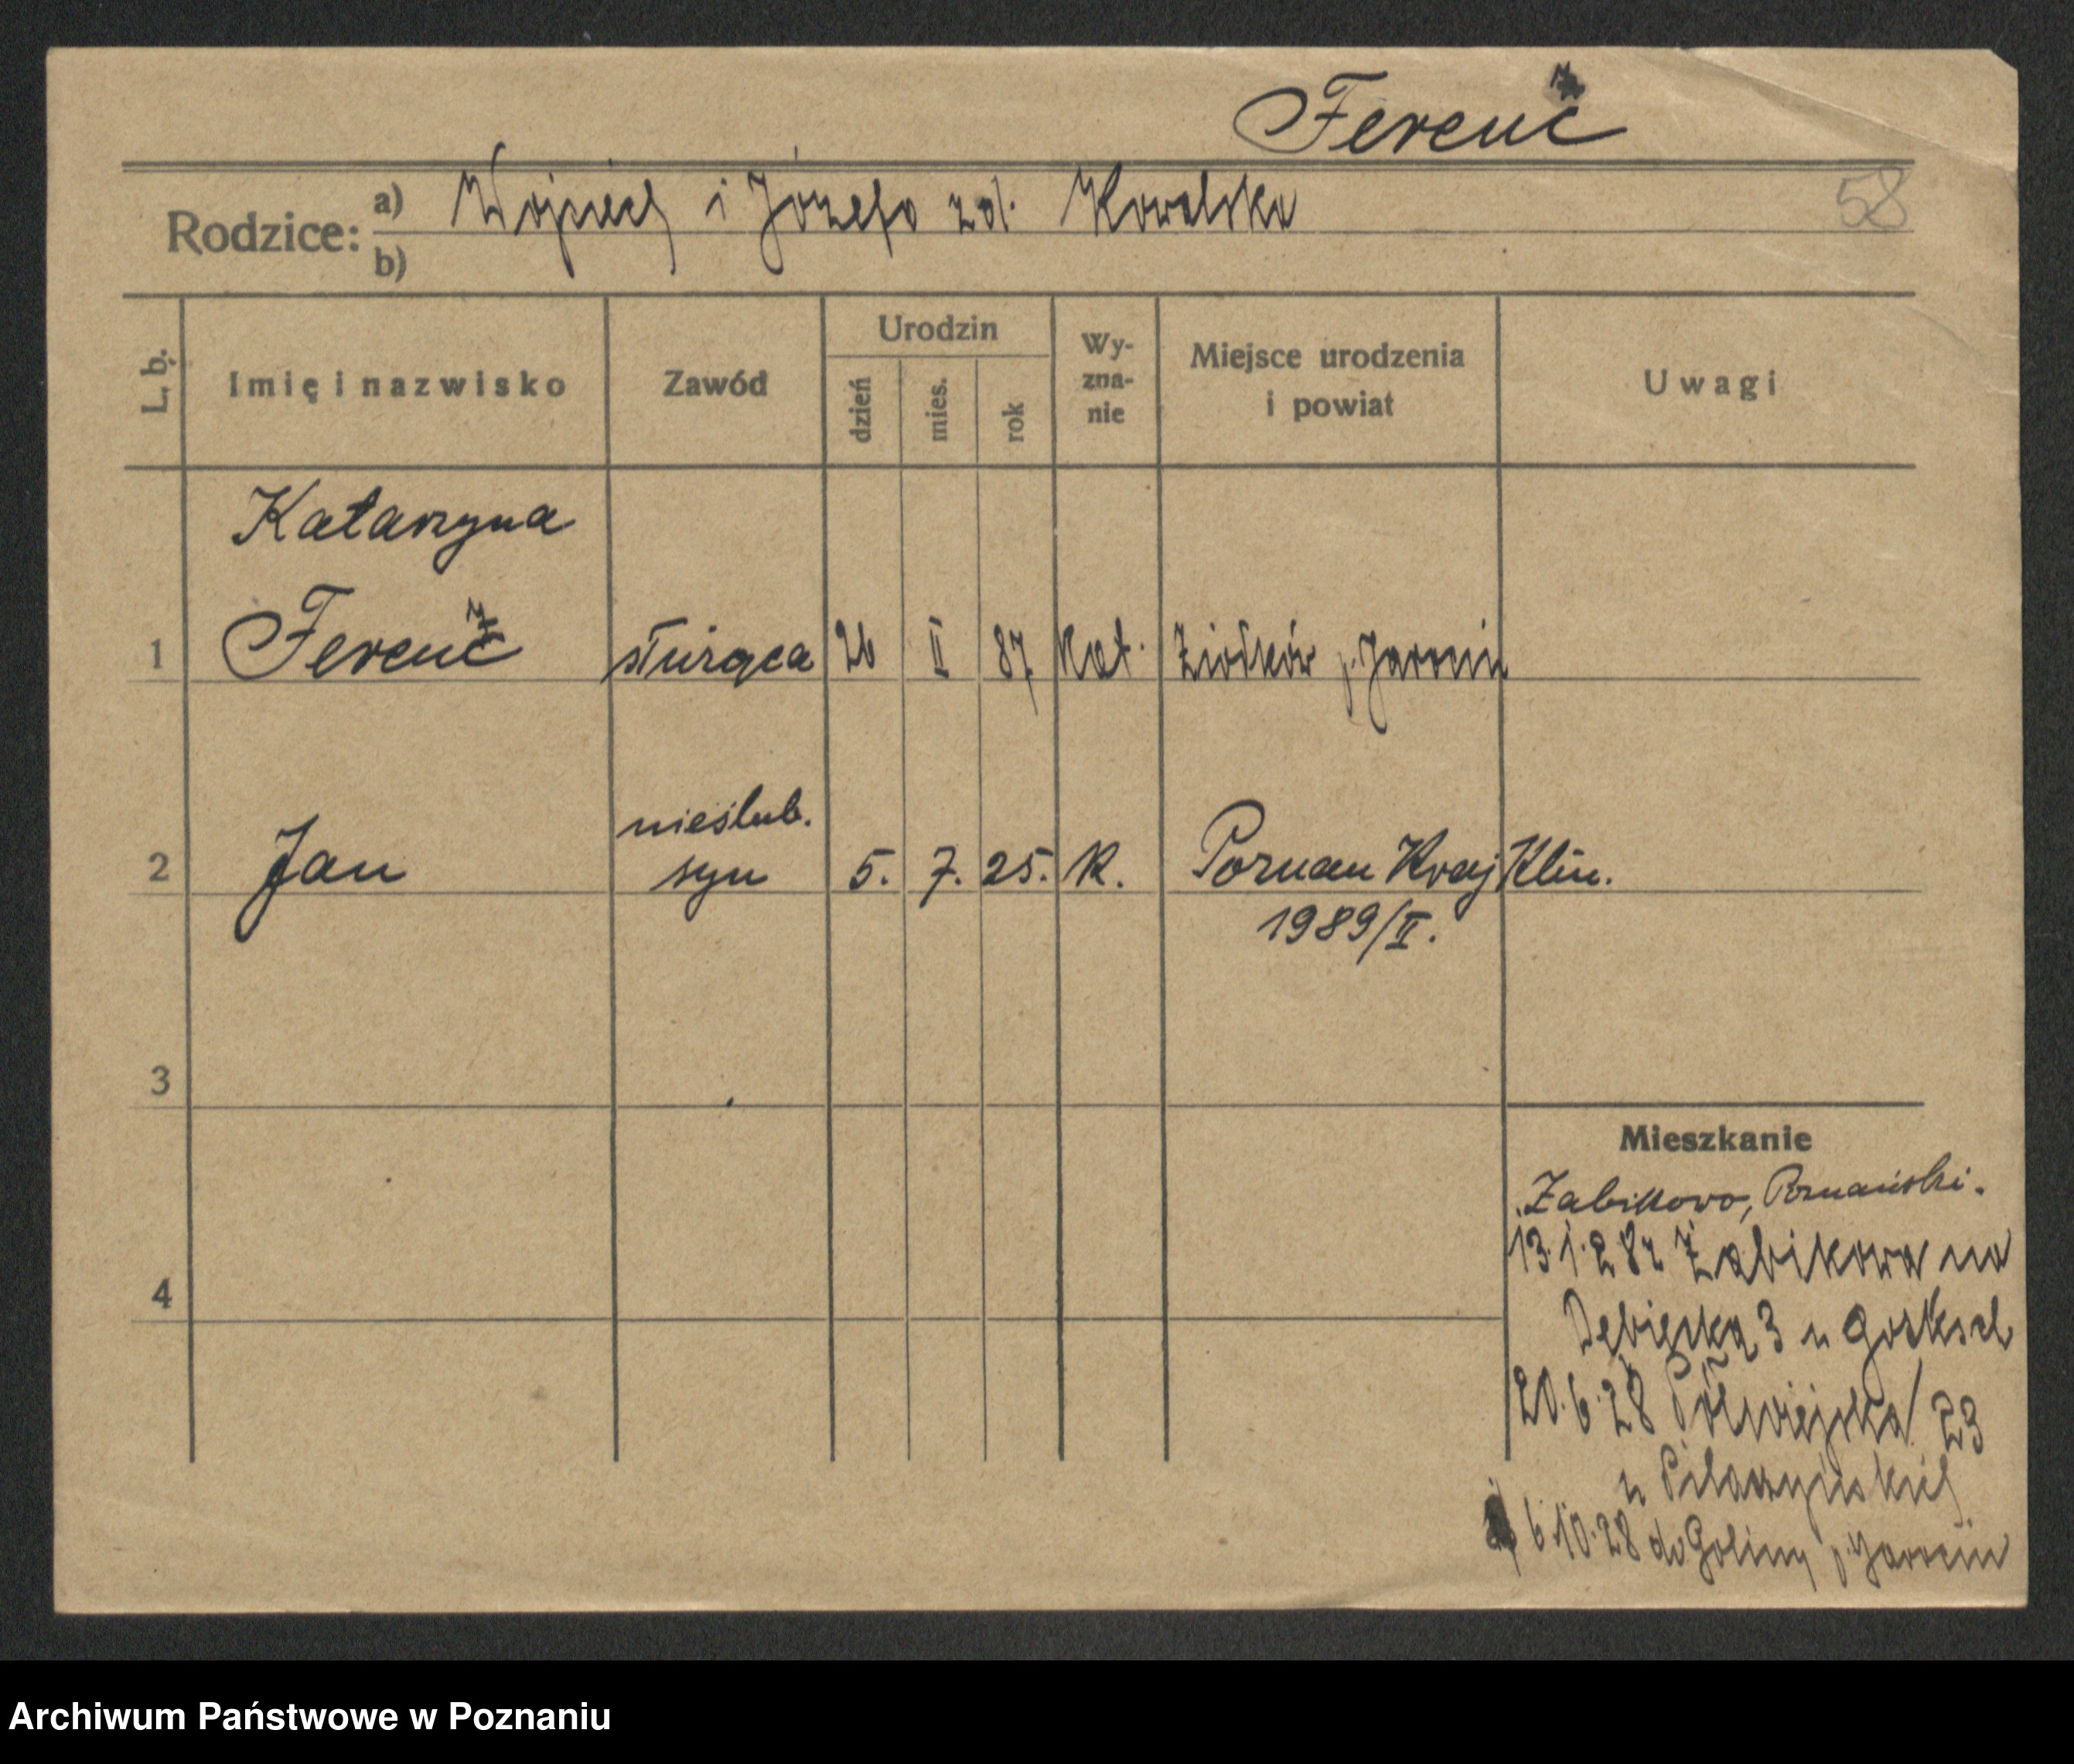 Ferenc
ż
Rodzice: a) Wojciech i Józefa zd. Kowalska
58
b)
L. b.
Imię i nazwisko
Zawód
Urodzin
dzień
mies.
rok
Wy-
zna-
nie
Miejsce urodzenia
i powiat
Uwagi
Katarzyna
1 Ferenc służąca 26 II 87 kat. Ziółków p. Jarocin
ż
nieślub.
2 Jan syn 5. 7. 25. K. Poznan Kraj Klin.
1989/II.
3
4
Mieszkanie
Żabikowo, Poznański.
13.1.28 z Żabikowa na
Dębiecką 3 u
20.6.28 Półwiejska 23
u
6.10.28 do Goliny p. Jarocin
Archiwum Państwowe w Poznaniu